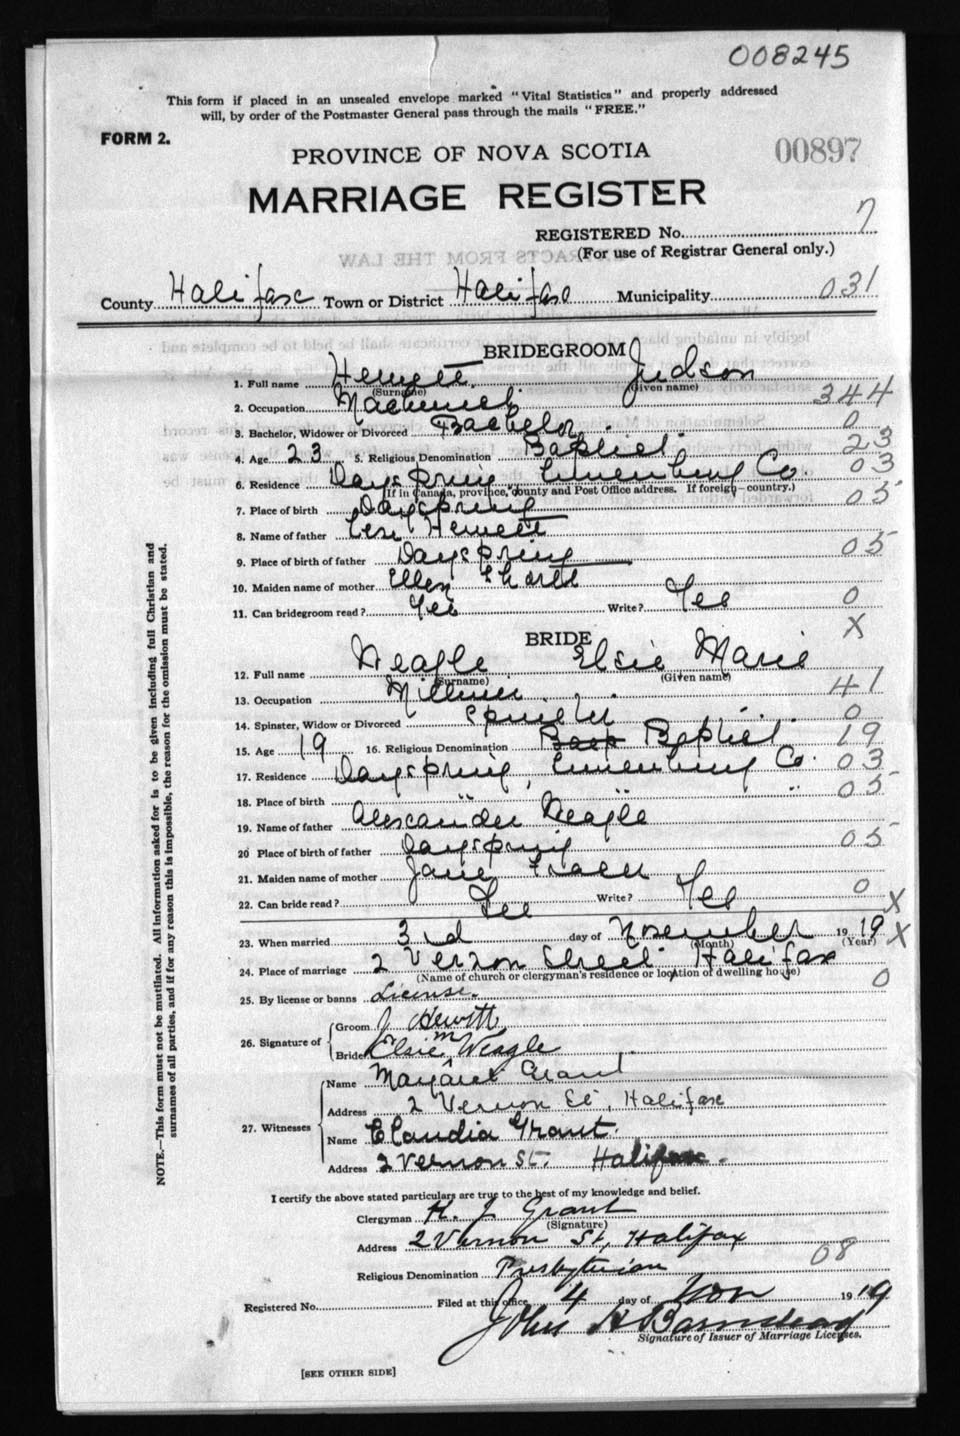 008245
This form if placed in an unsealed envelope marked "Vital Statistics" and properly addressed
will, by order of the Postmaster General pass through the mails "FREE."
FORM 2.
PROVINCE OF NOVA SCOTIA
00897
MARRIAGE REGISTER
REGISTERED No. 7
(For use of Registrar General only.)
County Halifax Town or District Halifax Municipality 031
BRIDEGROOM
1. Full name Hewett Judson
(Surname) (Given name)
2. Occupation Machinist 344
3. Bachelor, Widower or Divorced Bachelor 0
4. Age 23 5. Religious Denomination Baptist 23
6. Residence Dayspring Lunenburg Co. 03
(If in Canada, province, county and Post Office address. If foreign—country.)
7. Place of birth Dayspring 05
8. Name of father Hewett
9. Place of birth of father Dayspring 05
10. Maiden name of mother Ellen
11. Can bridegroom read? Yes Write? Yes 0
X
BRIDE
12. Full name Weagle Elsie Marie
(Surname) (Given name)
13. Occupation 41
14. Spinster, Widow or Divorced Spinster 0
15. Age 19 16. Religious Denomination Baptist 19
17. Residence Dayspring, Lunenburg Co. 03
18. Place of birth " " 05
19. Name of father Alexander Weagle
20 Place of birth of father Dayspring 05
21. Maiden name of mother Jane
22. Can bride read? Yes Write? Yes 0 X
23. When married 3rd day of November 1919 X
(Month) (Year)
24. Place of marriage 2 Vernon Street Halifax
(Name of church or clergyman's residence or location of dwelling house) 0
25. By license or banns License.
26. Signature of Groom J Hewitt
Bride Elsie M Weagle
27. Witnesses Name Margaret Grant
Address 2 Vernon St, Halifax
Name Claudia Grant.
Address 2 Vernon St. Halifax.
I certify the above stated particulars are true to the best of my knowledge and belief.
Clergyman K. J. Grant
(Signature)
Address 2 Vernon St, Halifax
Religious Denomination Presbyterian 08
Registered No. Filed at this office 4 day of Nov 1919
John A Barnstead
Signature of Issuer of Marriage Licenses.
[SEE OTHER SIDE]
NOTE.—This form must not be mutilated. All information asked for is to be given including full Christian and
surnames of all parties, and if for any reason this is impossible, the reason for the omission must be stated.